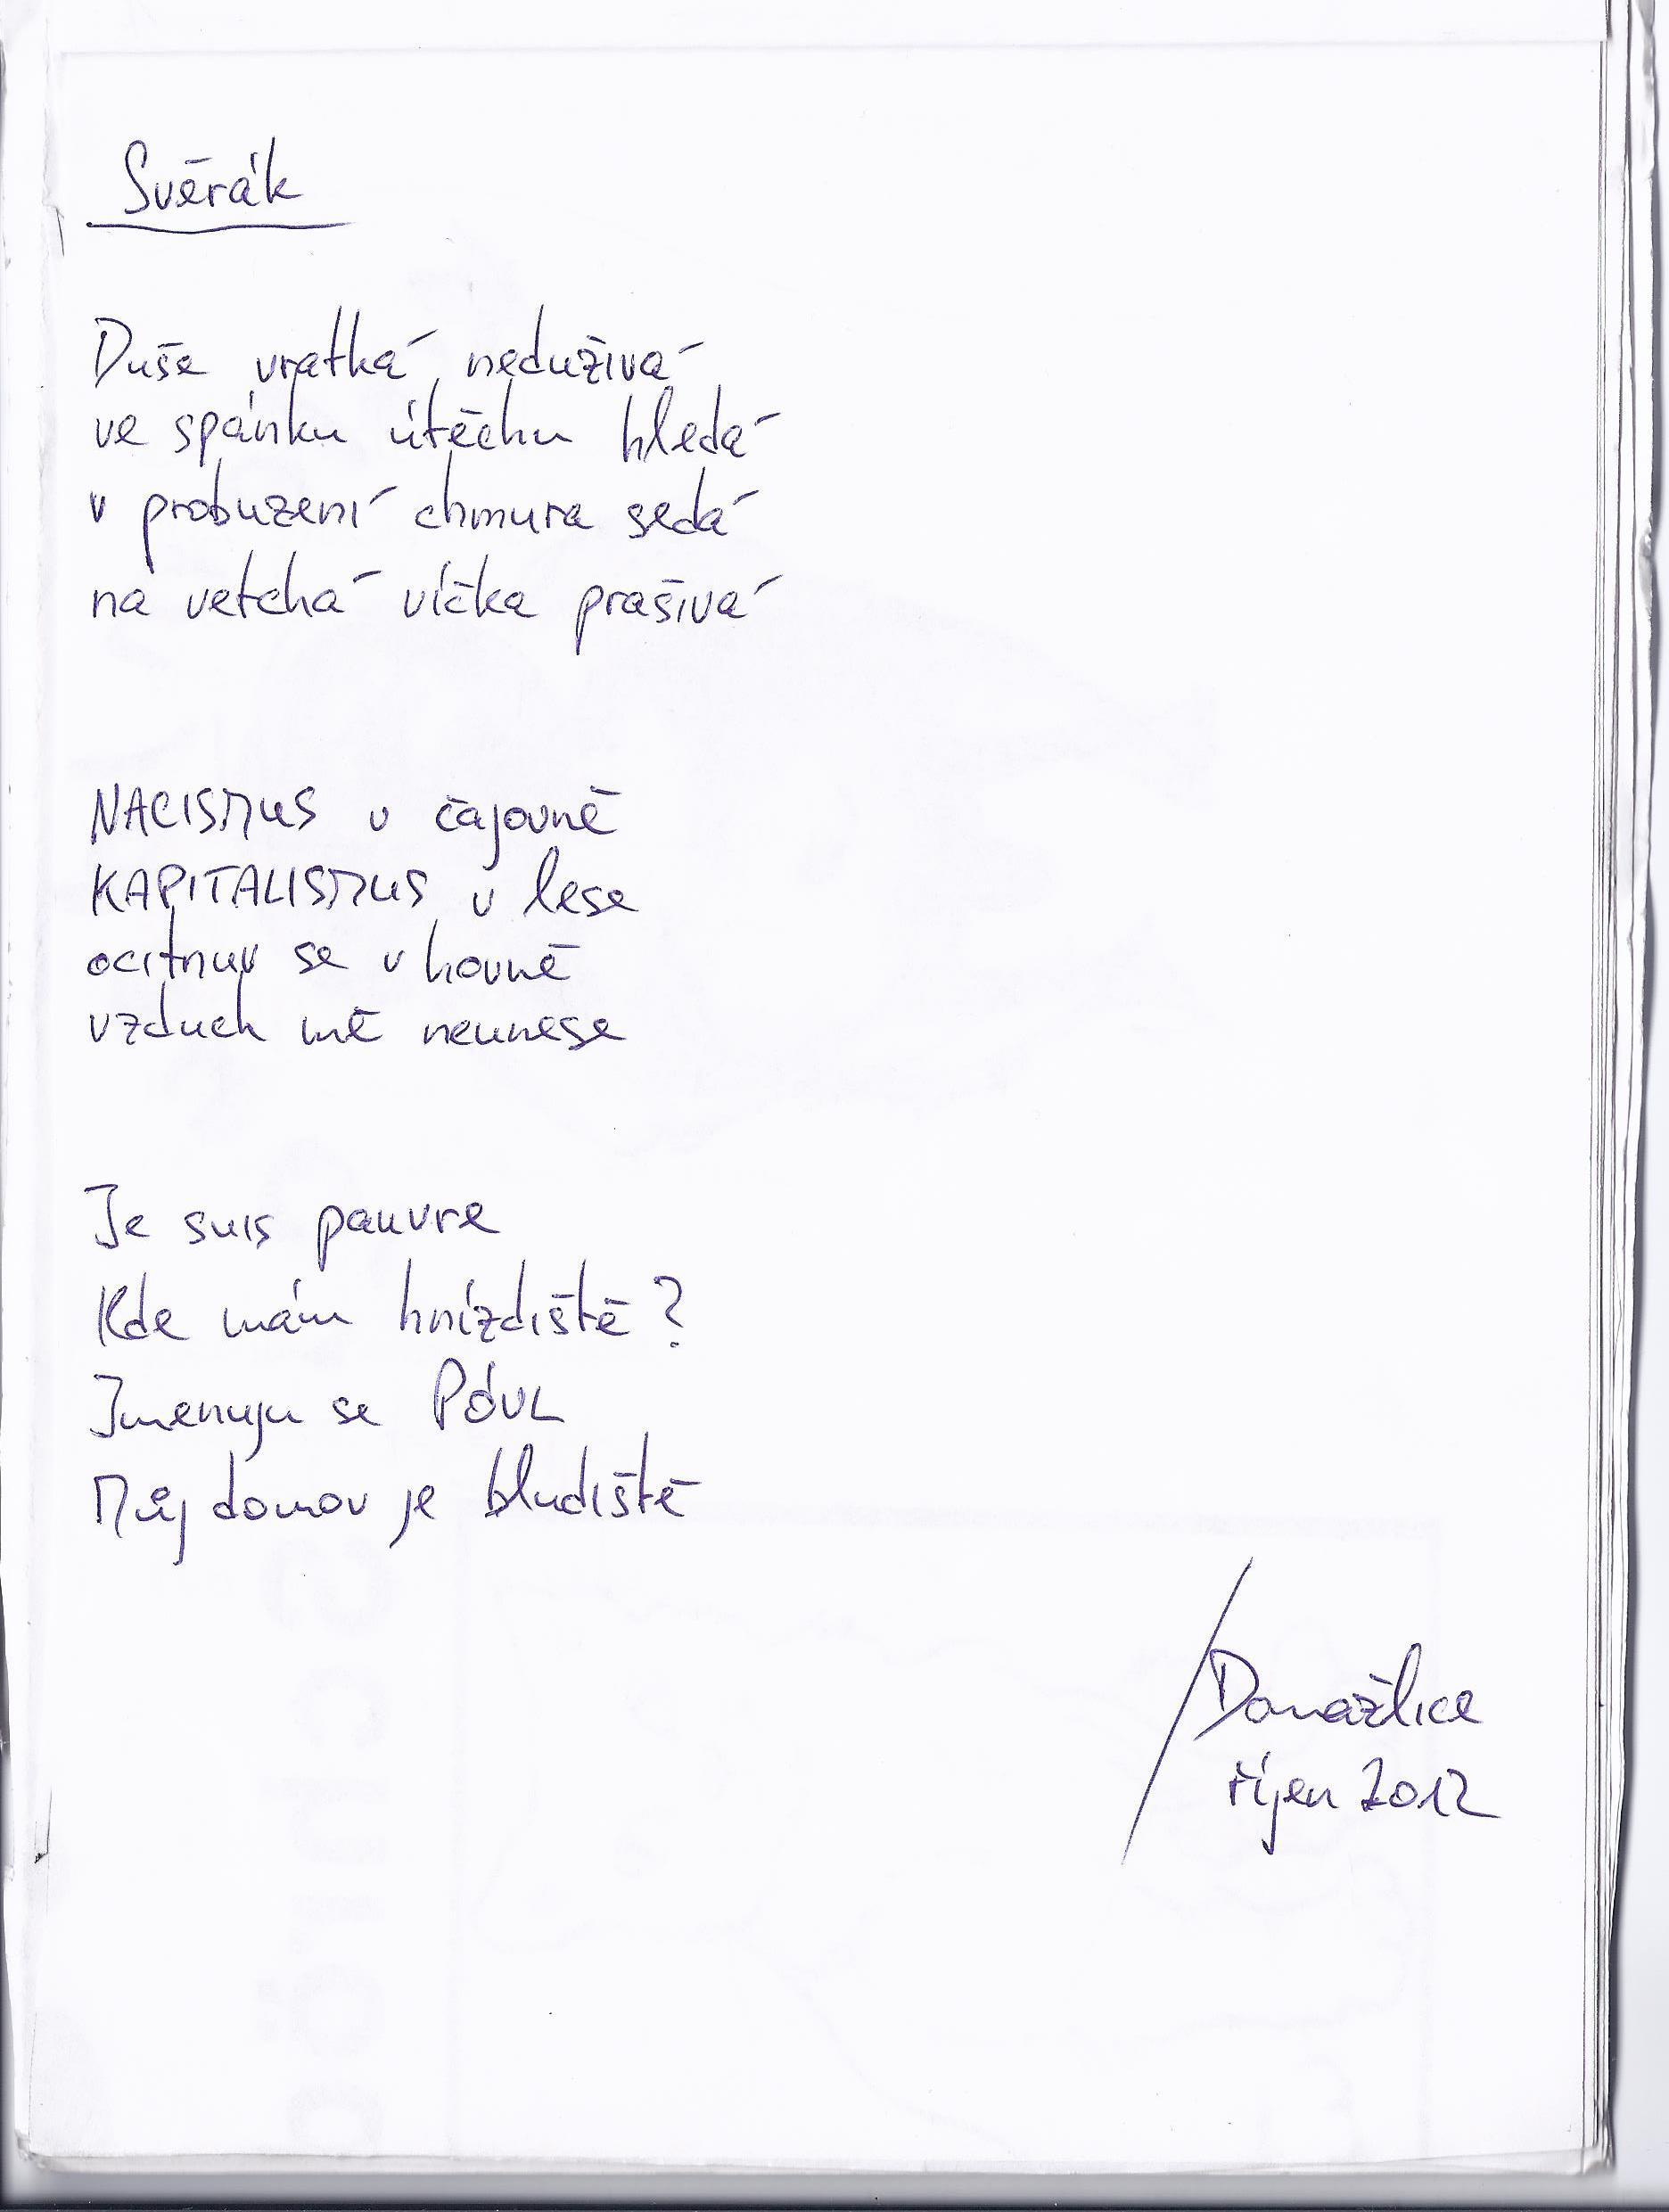 Svěrák
Duše vratká neduživá
ve spánku útěchu hledá
v probuzení chmura sedá
na vetchá víčka prašivá
NACISMUS v čajovně
KAPITALISMUS v lese
ocitnuv se v hovně
vzduch mě neunese
Je suis pauvre
Kde mám hnízdiště?
Jmenuju se PóVL
Můj domov je bludiště
Domažlice
říjen 2012